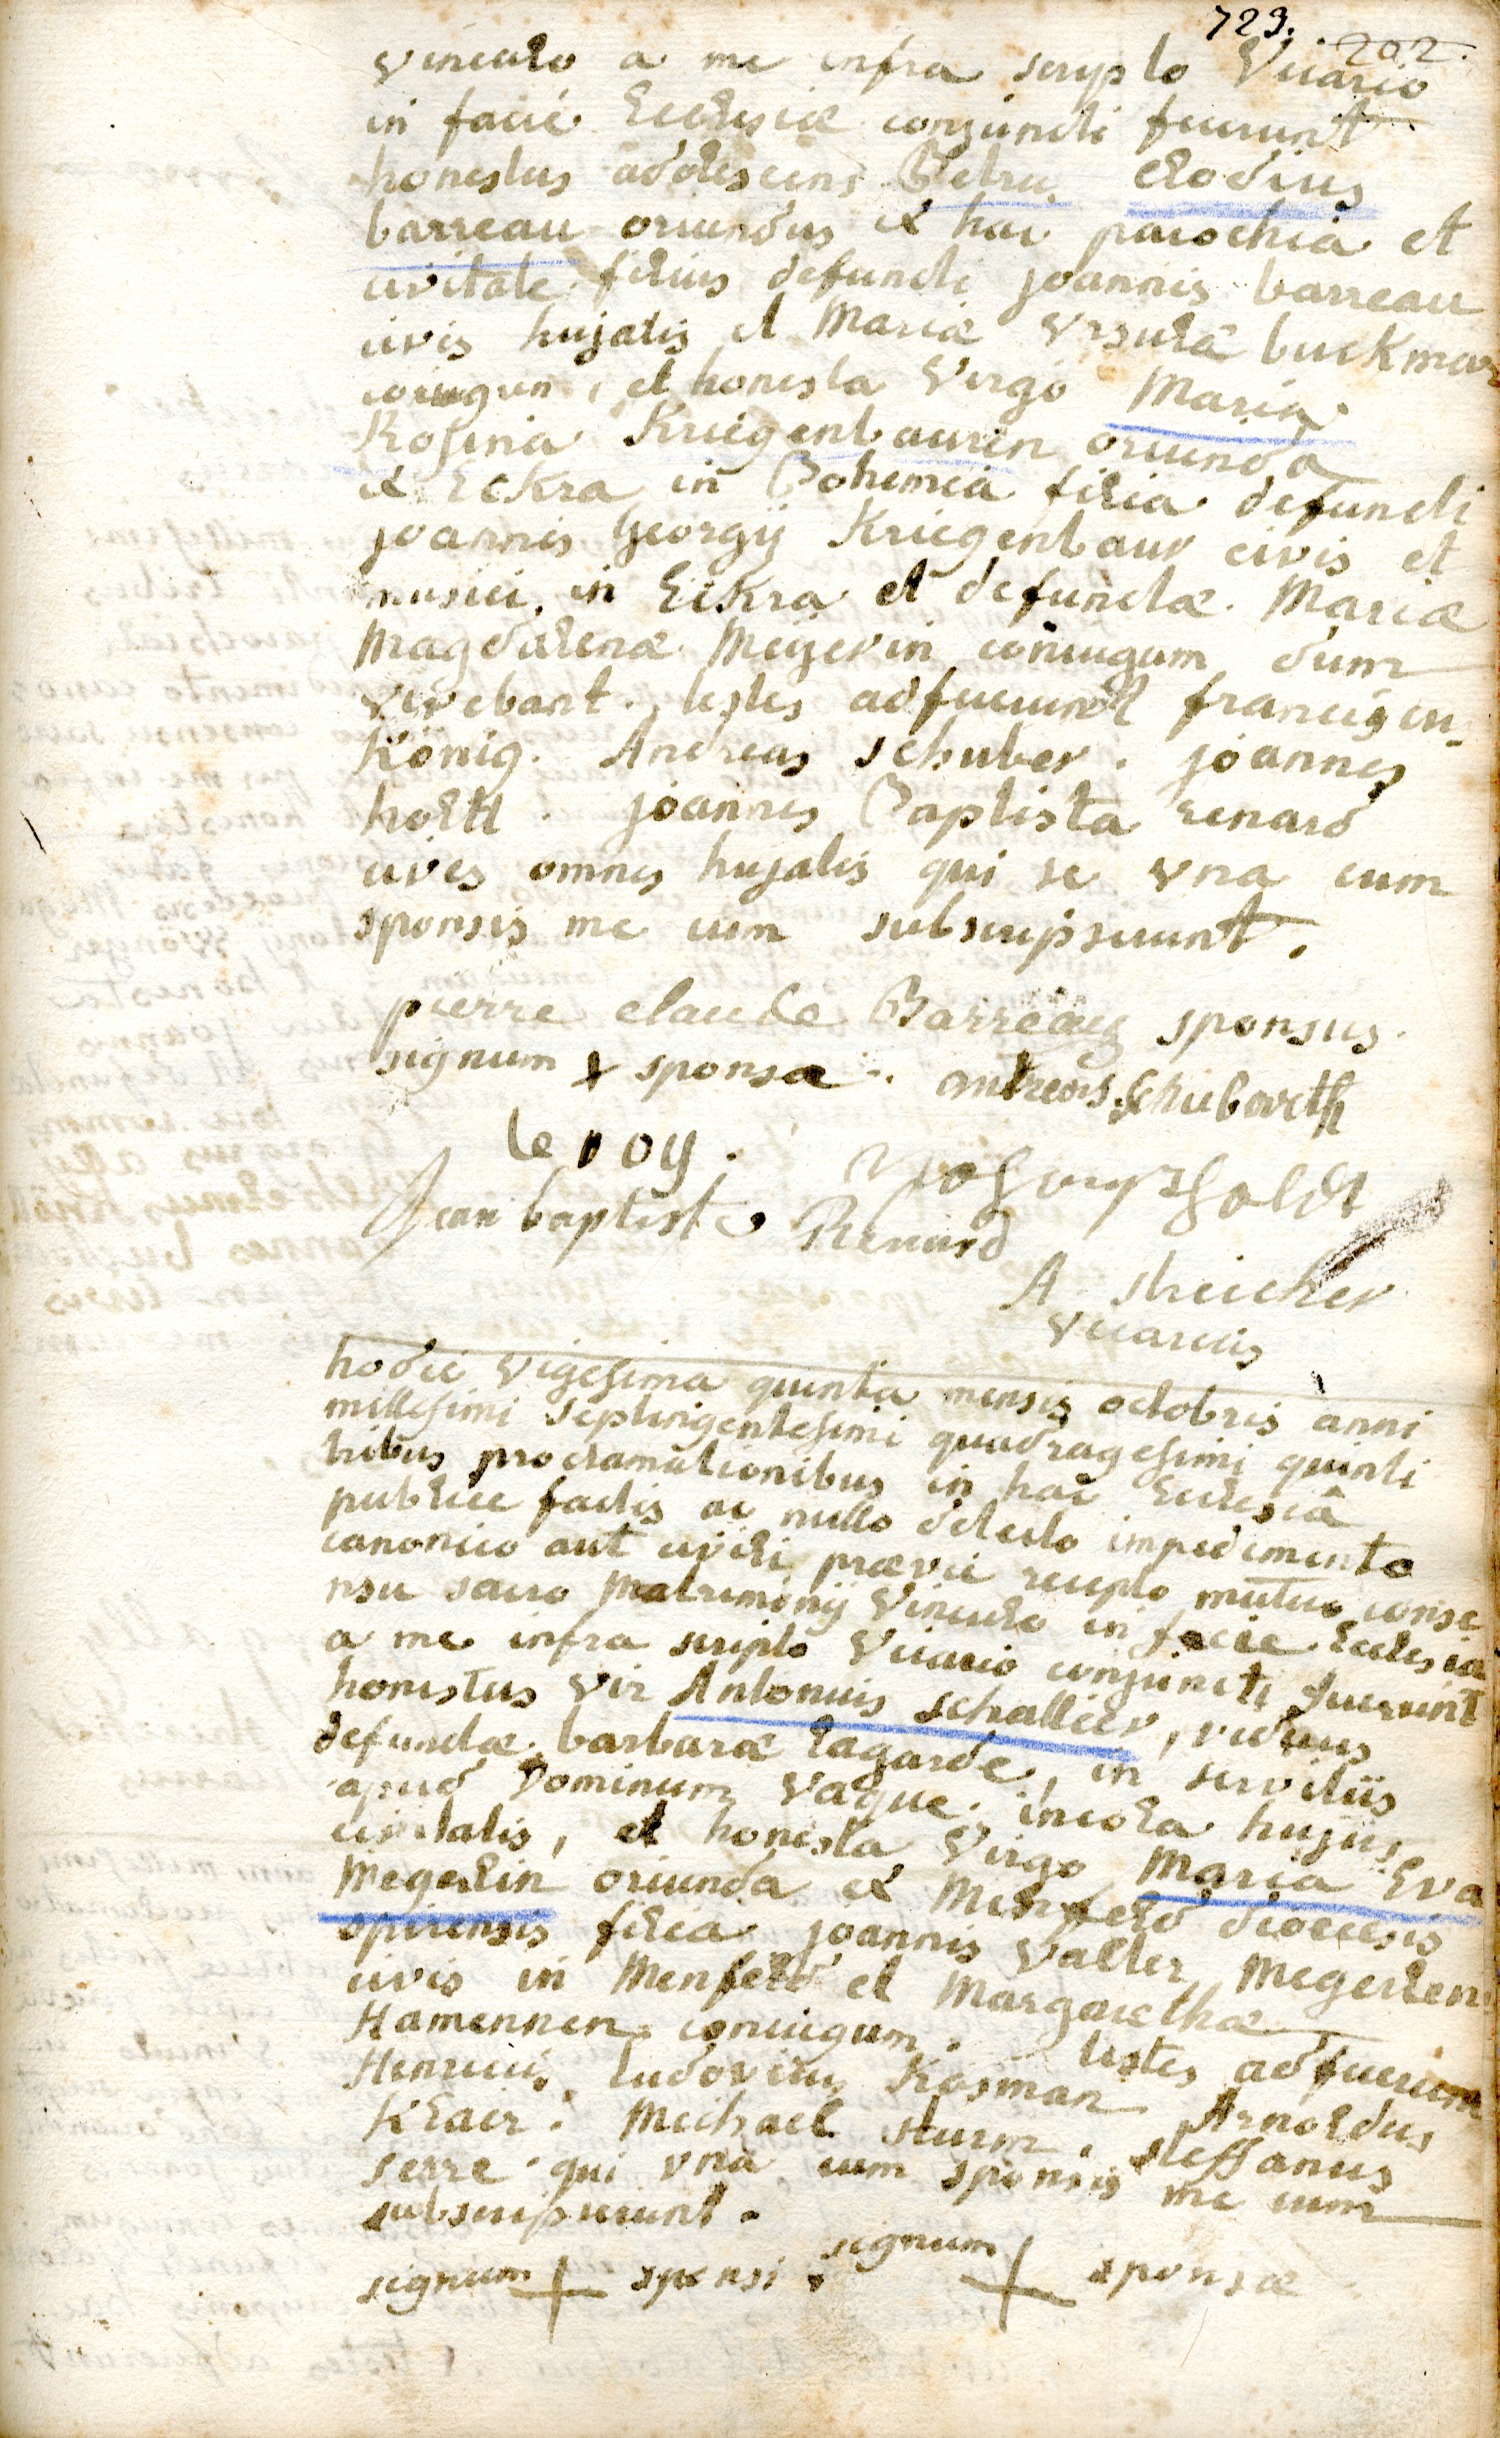 729. 202.
vinculo a me infra scripto Vicario
in facie Ecclesiæ conjuncti fuerunt
honestus adolescens Petrus Clodius
barreau oriundus ex hac parochia et
civitate filius defuncti joannis barreau
civis hujatis et Mariæ Vrsulæ buckmar
coniugum, et honesta Virgo Maria
Rosina Kriegenbaurin oriunda
ex Eckra in Bohemia filia defuncti
joannis Georgij Kriegenbaur civis et
musici in Eckra et defunctæ Mariæ
Magdalenæ Meijerin coniugum dum
vivebant. testes adfuerunt franciscus
König. Andreas schuber. joannes
holtt. joannes Baptista renard
cives omnes hujatis qui se vna cum
sponsis me cum subscripserunt.
pierre claude Barreaux sponsus.
signum x sponsæ. andreas schubarth
le roy.
Jean baptiste Renard
A. streicher
Vicarius
hodie vigesima quinta mensis octobris anni
millesimi septingentesimi quadragesimi quinti
tribus proclamationibus in hac Ecclesiâ
publice factis ac nullo detecto impedimento
canonico aut civili prævie recepto mutuo conse
nsu sacro Matrimonij Vinculo in facie Ecclesiæ
a me infra scripto Vicario conjuncti fuerunt
honestus vir Antonius schallier, viduus
defunctæ barbaræ lagarde, in servitiis
apud Dominum Vaque incola hujus
civitatis, et honesta Virgo Maria Eva
Megerlin oriunda ex Menfeld diœcesis
spirensis filia joannis Valter Megerlen
civis in Menfeld et Margarethæ
Hamennen coniugum. testes adfuerunt
Henricus ludovicus Kosman Arnoldus
Klaer. Michael sturm. steffanus
serre qui vna cum sponsis me cum
subscripserunt.
signum + sponsi. signum + sponsæ